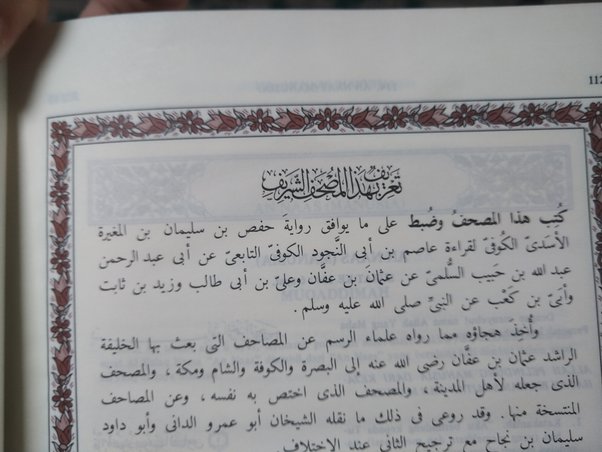 112
تعريف بهذا المصحف الشريف
كُتِبَ هذا المصحفُ وضُبِطَ على ما يوافق روايةَ حفص بن سليمان بن المغيرة
الأَسَدىّ الكُوفىّ لقراءة عاصم بن أبى النَّجود الكوفىّ التابعىّ عن أبى عبد الرحمن
عبد الله بن حَبيب السُّلمىّ عن عثمانَ بن عفَّان وعلىّ بن أبى طالب وزيد بن ثابت
وأُبَىّ بن كَعْب عن النبىّ صلى الله عليه وسلم .
وأُخِذَ هجاؤه مما رواه علماء الرسم عن المصاحف التى بعث بها الخليفة
الراشد عثمان بن عفَّان رضى الله عنه إلى البصرة والكوفة والشام ومكة ، والمصحف
الذى جعله لأهل المدينة ، والمصحف الذى اختص به نفسه ، وعن المصاحف
المنتسخة منها . وقد روعى فى ذلك ما نقله الشيخان أبو عمرو الدانى وأبو داود
سليمان بن نجاح مع ترجيح الثانى عند الاختلاف.